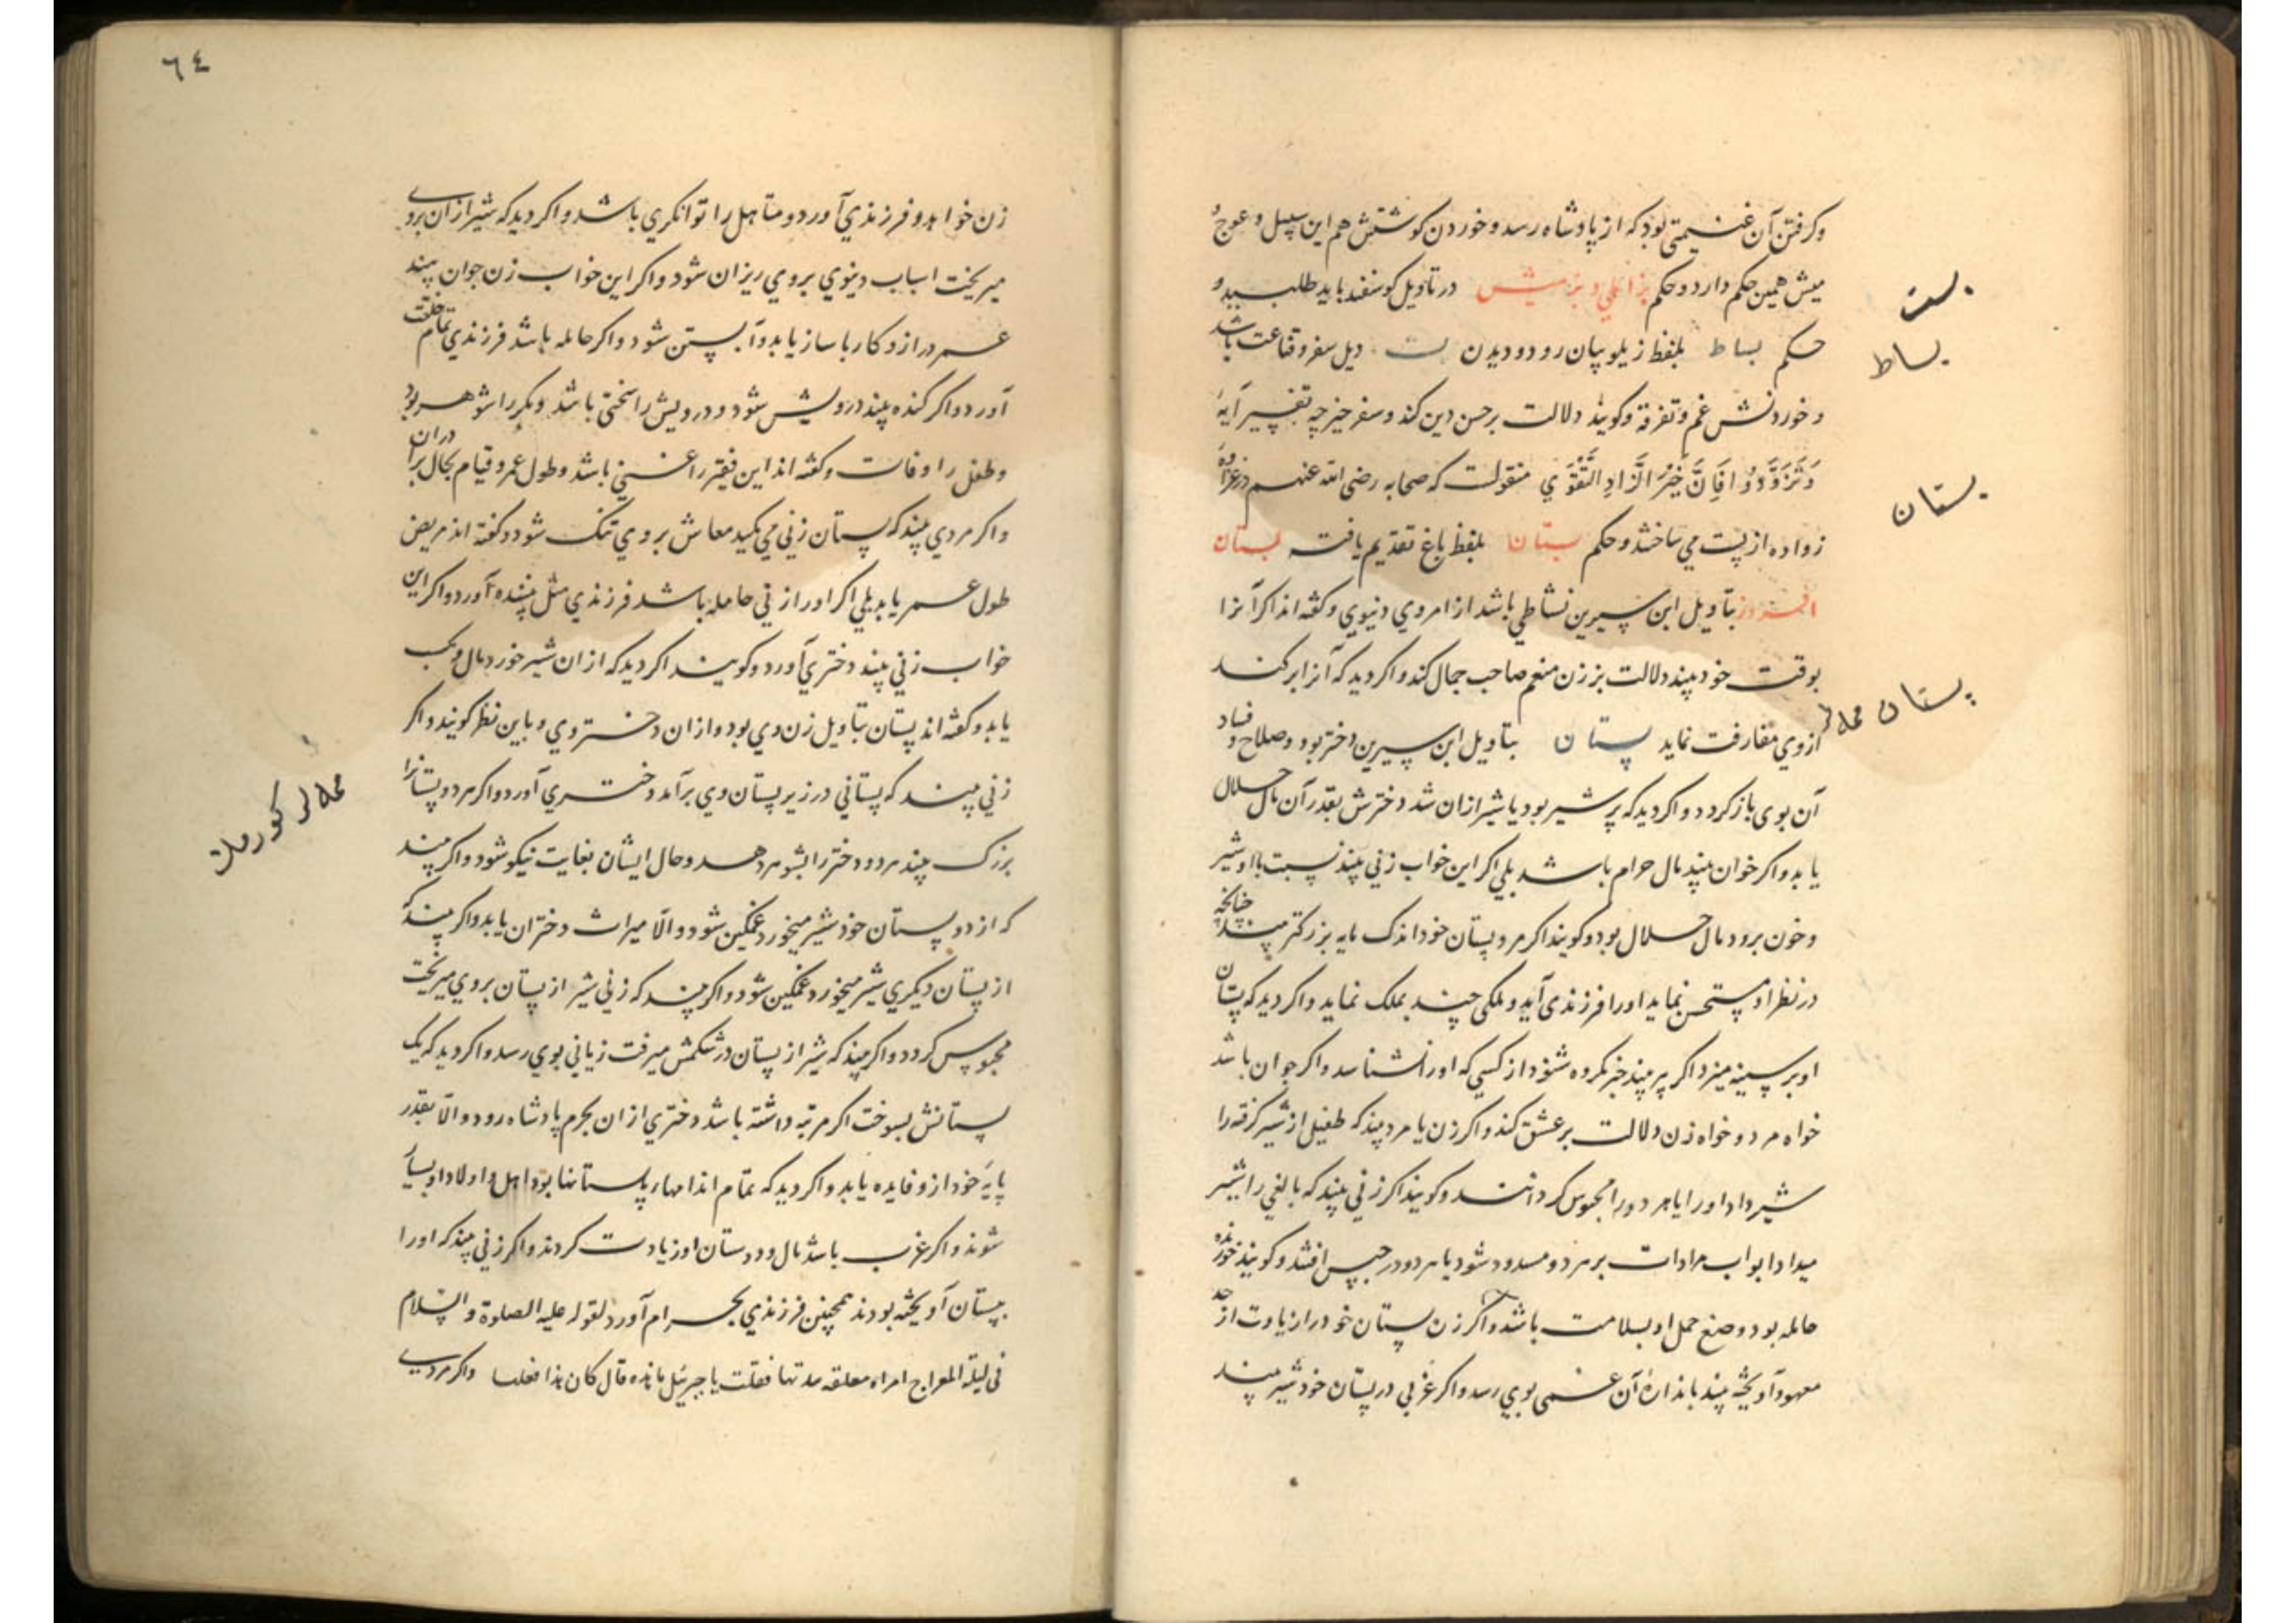 وکرفتن آن غنیمتی بود که از پادشاه رسد و خوردن کوشتش هم این سبیل و عوج و
میش همین حکم دارد و حکم بز در تاویل کوسفند باید طلبید و
بست
حکم بساط بلفظ زیلو بیان رود و دیدن بست دیل سفر و قناعت باشد
بساط
و خوردنش غم و تفرقه و کویند دلالت بر حسن دین کند و سفر خیر چه تفسیر آیهٔ
وَتَزَوَّدُوا فَاِنَّ خَیْرَ الزَّادِ التَّقْوَي منقولست که صحابه رضی الله عنهم در غزاوه
بستان
زواده از پست مي ساختند و حکم بستان بلفظ باغ تقدیم یافته بستان
افروز بتاویل ابن سیرین نشاطي باشد از امر وي دنیوي و کفته اند اکر آنرا
بوقت خود بیند دلالت بر زن منعم صاحب جمال کند و اکر دید که آنرا برکند
پستان
از وي مفارقت نماید پستان بتاویل ابن سیرین دختر بود و صلاح و فساد
آن بوی بازکردد و اکر دید که پر شیر بود یا شیر ازان شد دخترش بقدر آن مال حلال
یابد و اکر خوان بیند مال حرام باشد بلي اکر این خواب زني بیند نسبت با او شیر
و خون برو د مال حلال بود و کویند اکر مرد پستان خود اندک مایه بزرکتر بیند چنانچه
در نظر او مستحسن نماید اورا فرزندی آید و ملکی چند بملک نماید و اکر دید که پستان
او بر سینه میزد اکر پیر بیند خبر مکروه شنود از کسي که اورا نشناسد و اکر جوان باشد
خواه مرد و خواه زن دلالت بر عشق کند و اکر زن یا مرد بیند که طفیل از شیر کرفته را
شیر داد اورا یا هر دورا محبوس کردانند و کویند اکر زني بیند که بالغي را شیر
میداد ابواب مرادات بر هر دو مسدود شود یا هر دو در حبس افتند و کویند خورنده
حامله بود وضع حمل او بسلامت باشد و اکر زن پستان خود را زیادت از حد
معهود آویخته بیند باندازهٔ آن غمی بوي رسد و اکر عزبي در پستان خود شیر بیند
٦٤
زن خواهد و فرزندي آورد و متاهل را توانکري باشد و اکر دید که شیر ازان بروي
میریخت اسباب دنیوي بروي ریزان شود و اکر این خواب زن جوان بیند
عمر دراز و کار با ساز یابد و آبستن شود و اکر حامله باشد فرزندي تمام خلقت
آورد و اکر کنده بیند درویش شود و درویش را سختي باشد و مکر را شوهر بود
و طفل را وفات و کفته اند این فقیر را غني باشد و طول عمر و قیام بحال بران
و اکر مردي بیند که پستان زني مي مکید معاش بروي تنک شود و کفته اند مریض
طول عمر یابد بلي اکر اورا زني حامله باشد فرزندي مثل بیننده آورد و اکر این
خواب زني بیند دختري آورد و کویند اکر دید که ازان شیر خورد مال و کسب
یابد و کفته اند پستان بتاویل زن وي بود و ازان دختر وي و باین نظر کویند و اکر
زني بیند که پستاني در زیر پستان وي برآمد دختري آورد و اکر هر دو پستانرا
بزرک بیند هر دو دختر را بشوهر دهد و حال ایشان بغایت نیکو شود و اکر بیند
که از دو پستان خود شیر میخورد غمکین شود و الا میراث دختران یابد و اکر بیند که
از پستان دیکري شیر میخورد غمکین شود و اکر بیند که زني شیر از پستان بروي میریخت
محبوس کردد و اکر بیند که شیر از پستان در شکمش میرفت زیاني بوي رسد و اکر دید که یک
پستانش بسوخت اکر مرتبه داشته باشد دختري ازان بحرم پادشاه رود و الا بقدر
پایهٔ خود ازو فایده یابد و اکر دید که تمام اندامهاء پستانها بود اهل و اولاد او بسیار
شوند و اکر عزب باشد مال و دوستان او زیادت کردند و اکر زني بیند که اورا
بپستان آویخته بودند همچنین فرزندي بحرام آورد لقوله علیه الصلوة و السلام
في لیلة المعراج امراه معلقه بثدیها فقلت یا جبرئیل ما هذه قال کان هذا فعلها و اکر مردي